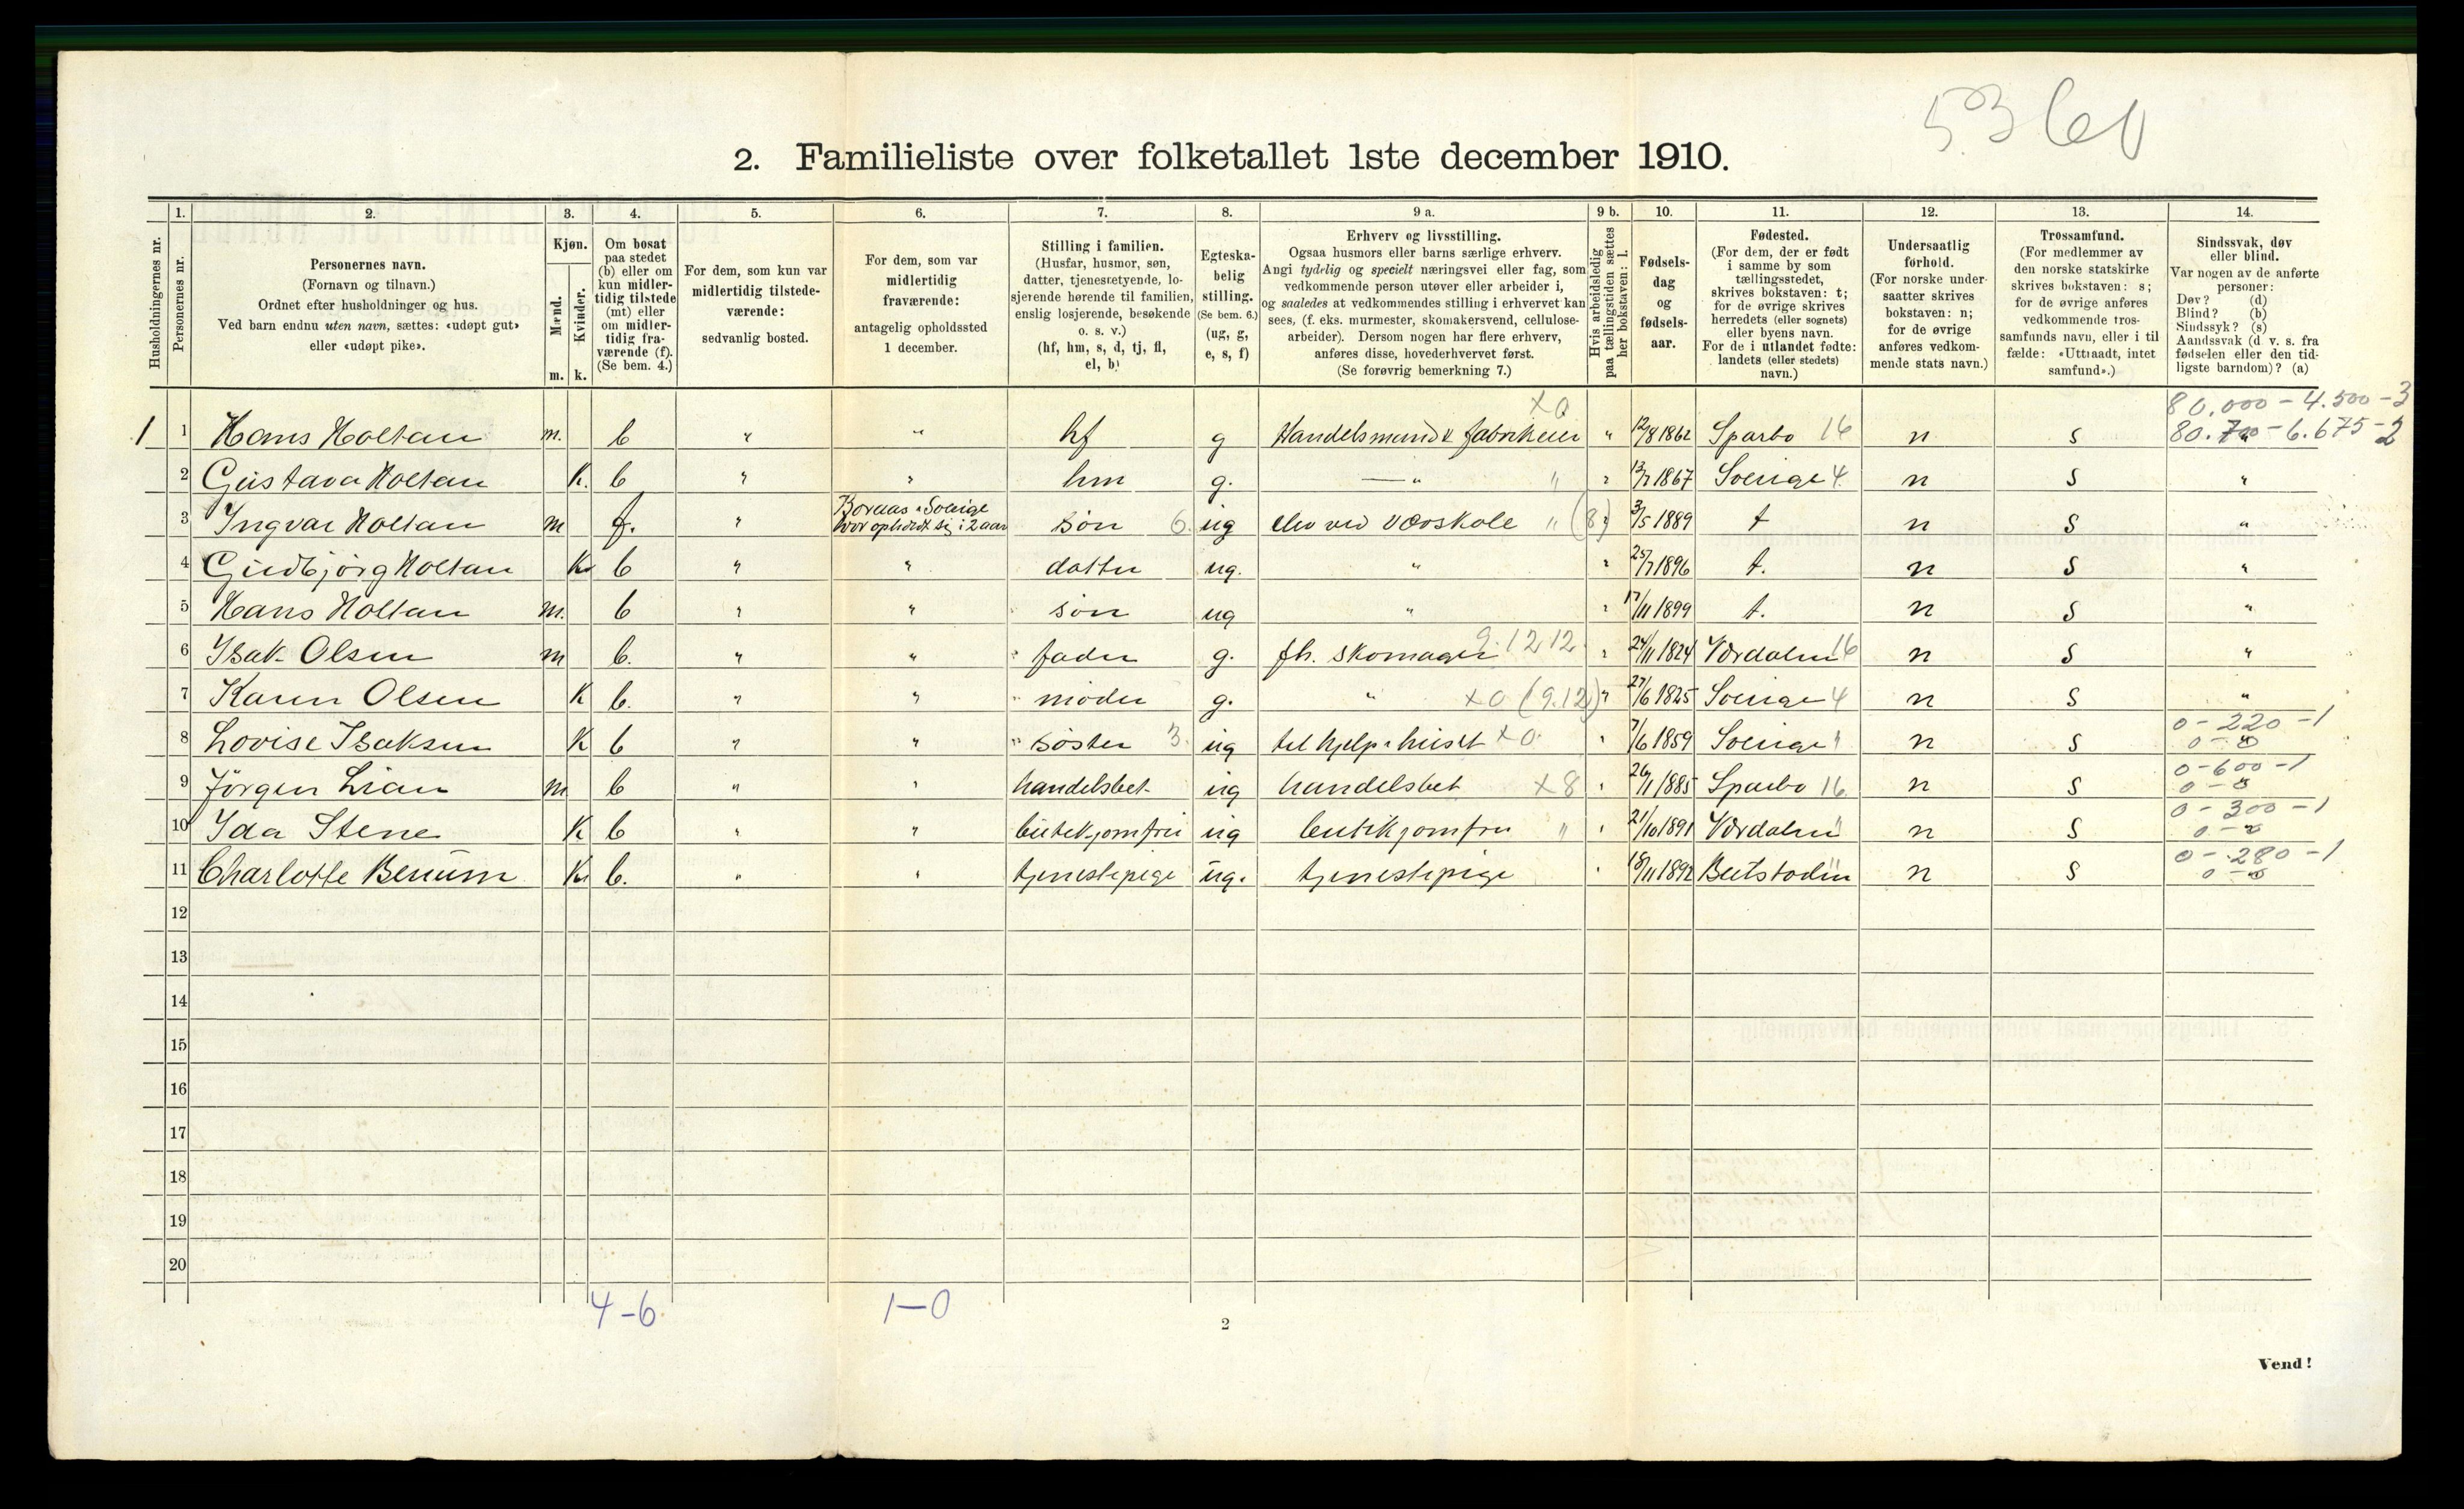 5360
2. Familieliste over folketallet 1ste december 1910.
Husholdningernes nr.
1.
Personernes nr.
2.
Personernes navn.
(Fornavn og tilnavn.)
Ordnet efter husholdninger og hus.
Ved barn endnu uten navn, sættes: «udøpt gut»
eller «udøpt pike».
3.
Kjøn.
Mænd.
Kvinder.
m. k.
4.
Om bosat
paa stedet
(b) eller om
kun midler-
tidig tilstede
(mt) eller
om midler-
tidig fra-
værende (f).
(Se bem. 4.)
5.
For dem, som kun var
midlertidig tilstede-
værende:
sedvanlig bosted.
6.
For dem, som var
midlertidig
fraværende:
antagelig opholdssted
1 december.
7.
Stilling i familien.
(Husfar, husmor, søn,
datter, tjenestetyende, lo-
sjerende hørende til familien,
enslig losjerende, besøkende
o. s. v.)
(hf, hm, s, d, tj, fl,
el, b)
8.
Egteska-
belig
stilling.
(Se bem. 6.)
(ug, g,
e, s, f)
9 a.
Erhverv og livsstilling.
Ogsaa husmors eller barns særlige erhverv.
Angi tydelig og specielt næringsvei eller fag, som
vedkommende person utøver eller arbeider i,
og saaledes at vedkommendes stilling i erhvervet kan
sees, (f. eks. murmester, skomakersvend, cellulose-
arbeider). Dersom nogen har flere erhverv,
anføres disse, hovederhvervet først.
(Se forøvrig bemerkning 7.)
9 b.
Hvis arbeidsledig
paa tællingstiden sættes
her bokstaven: l.
10.
Fødsels-
dag
og
fødsels-
aar.
11.
Fødested.
(For dem, der er født
i samme by som
tællingsstedet,
skrives bokstaven: t;
for de øvrige skrives
herredets (eller sognets)
eller byens navn.
For de i utlandet fødte:
landets (eller stedets)
navn.)
12.
Undersaatlig
forhold.
(For norske under-
saatter skrives
bokstaven: n;
for de øvrige
anføres vedkom-
mende stats navn.)
13.
Trossamfund.
(For medlemmer av
den norske statskirke
skrives bokstaven: s;
for de øvrige anføres
vedkommende tros-
samfunds navn, eller i til
fælde: «Uttraadt, intet
samfund».)
14.
Sindssvak, døv
eller blind.
Var nogen av de anførte
personer:
Døv? (d)
Blind? (b)
Sindssyk? (s)
Aandssvak (d. v. s. fra
fødselen eller den tid-
ligste barndom)? (a)
x0 80.000 - 4.500 - 3
1 1 Hans Holtan m. b " " hf g Handelsmand & fabrikeier " 12/8 1862 Sparbo 16 n s 80.700 - 6.675 - 2
2 Gustava Holtan K. b " " hm g. — " " " 13/7 1867 Sverige 4 n s "
Boraas i Sverige
3 Ingvar Holtan m f. " hvor opholdt sig i 2 aar søn 6. ug elev ved Vævskole " (8) 3/5 1889 t n s "
4 Gudbjørg Holtan K b " " datter ug. " " 25/7 1896 t. n s "
5 Hans Holtan m. b " " søn ug " " 17/11 1899 t. n s "
6 Isak Olsen m b. " " fader g. fh. skomager 9.12 12 " 24/11 1824 Værdalen 16 n s "
7 Karen Olsen K b. " " moder g. " x0 (9.12) " 27/6 1825 Sverige 4 n s "
0 - 220 - 1
8 Lovise Isaksen K b " " søster 3. ug til hjelp i huset x0 " 7/6 1859 Sverige " n s 0 - 0
0 - 600 - 1
9 Jørgen Lian m b " " handelsbet. ug handelsbet x8 " 26/11 1885 Sparbo 16 n s 0 - 0
0 - 300 - 1
10 Ida Stene K b " " butikjomfru ug butikjomfru " " 21/10 1891 Værdalen " n s 0 - 0
0 - 280 - 1
11 Charlotte Benum K. b. " " tjenestepige ug. tjenestepige " 18/11 1892 Beitstaden " n s 0 - 0
12
13
14
15
16
17
18
19
20
4 - 6 1 - 0
2
Vend!